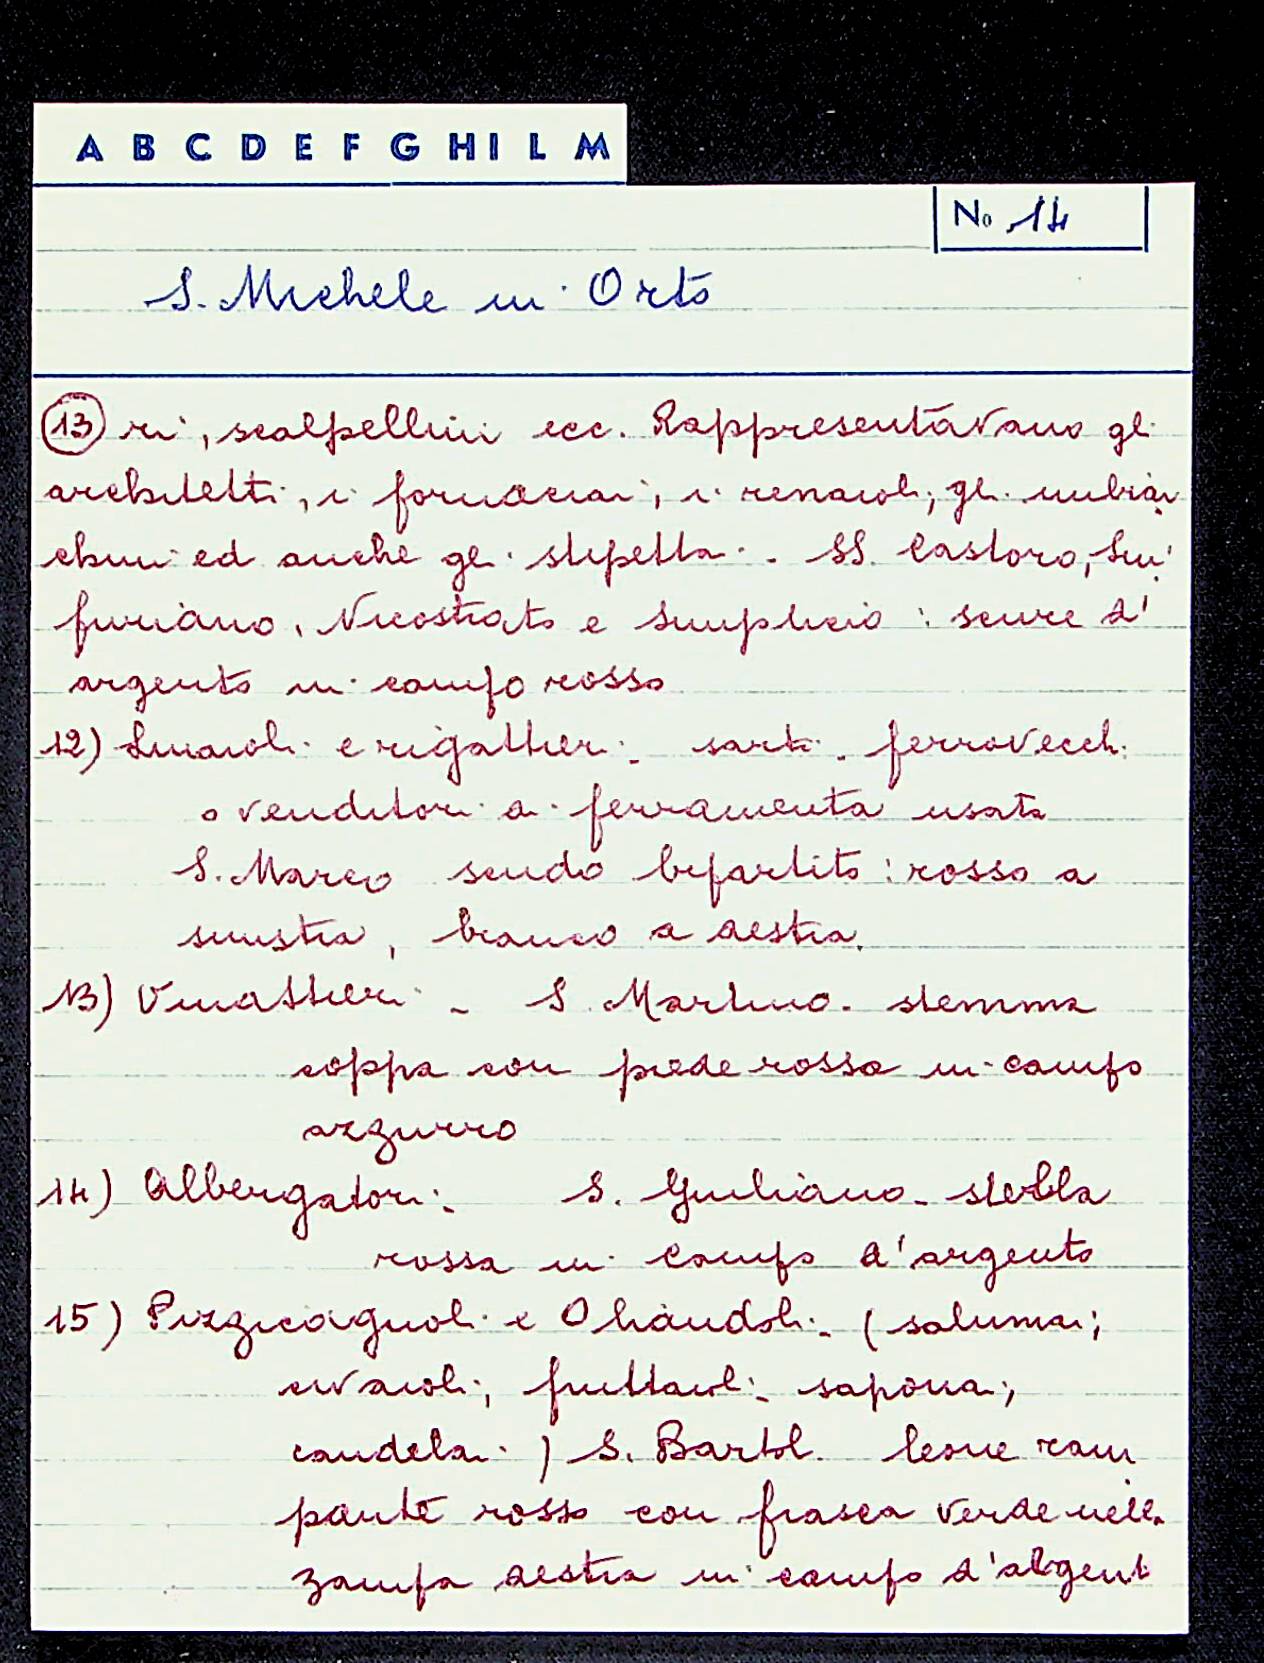 A B C D E F G H I L M
No 14
S. Michele in Orto
13 ri, scalpellini ecc. Rappresentavano gli
architetti, i fornaciai, i renaioli, gli imbian
chini ed anche gli stipettai. SS. Castoro, Sin
furiano, Nicostrato e Simplicio: scure d'
argento in campo rosso
12) Linaioli e rigattieri - sarti - ferrovecchi
o venditori di ferramenta usata
S. Marco scudo bipartito: rosso a
sinistra, bianco a destra.
13) Vinattieri - S. Martino - stemma
coppa con piede rossa in campo
azzurro
14) Albergatori - S. Giuliano - stella
rossa in campo d'argento
15) Pizzicagnoli e Oliandoli - (salumai;
civaioli; fruttaioli - saponai;
candelai) S. Bartol. leone ram
pante rosso con frasca verde nella
zampa destra in campo d'argent